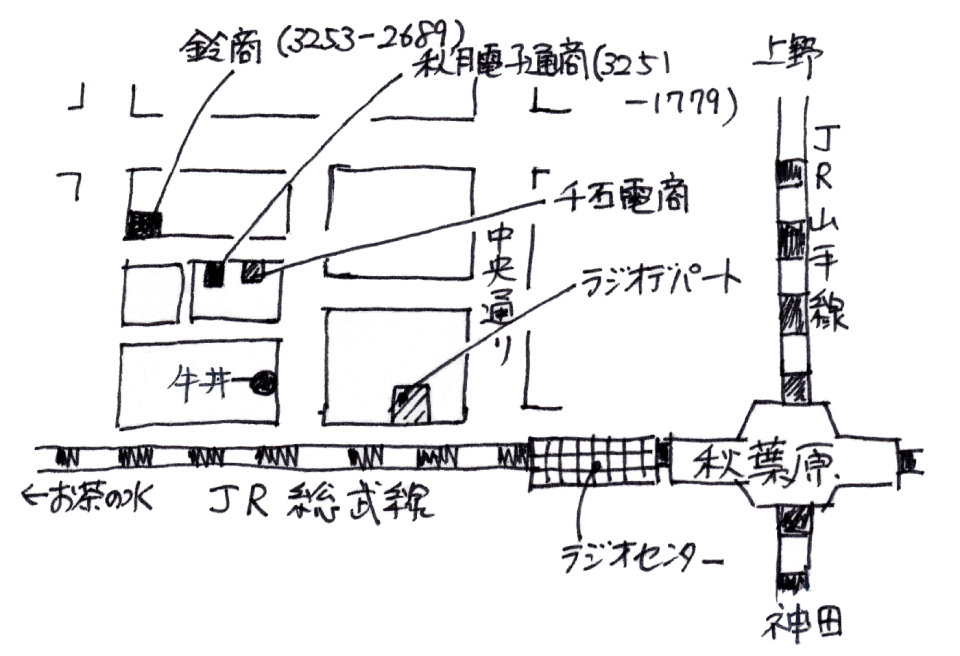 鈴商 (3253-2689)
秋月電子通商(3251
-1779)
上野
JR山手線
千石電商
中央通り
ラジオデパート
牛丼
秋葉原
←お茶の水
JR 総武線
ラジオセンター
神田